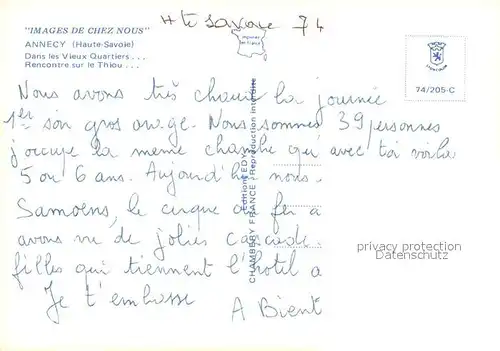 Hte Savoie 74
"IMAGES DE CHEZ NOUS"
ANNECY (Haute-Savoie)
Dans les Vieux Quartiers . . .
Rencontre sur le Thiou . . .
74/205-C
Editions EDY
CHAMBERY FRANCE - Reproduction interdite
Nous avons très chaud la journée
1er soir gros orage. Nous sommes 39 personnes
j'occupe la meme chambre qu' avec toi voila
5 ou 6 ans. Aujourd'hui nous
Samoens, le cirque de fer à
avons vu de jolies cascade
filles qui tiennent l'hotel a
Je t'embrasse
A Bient
privacy protection
Datenschutz